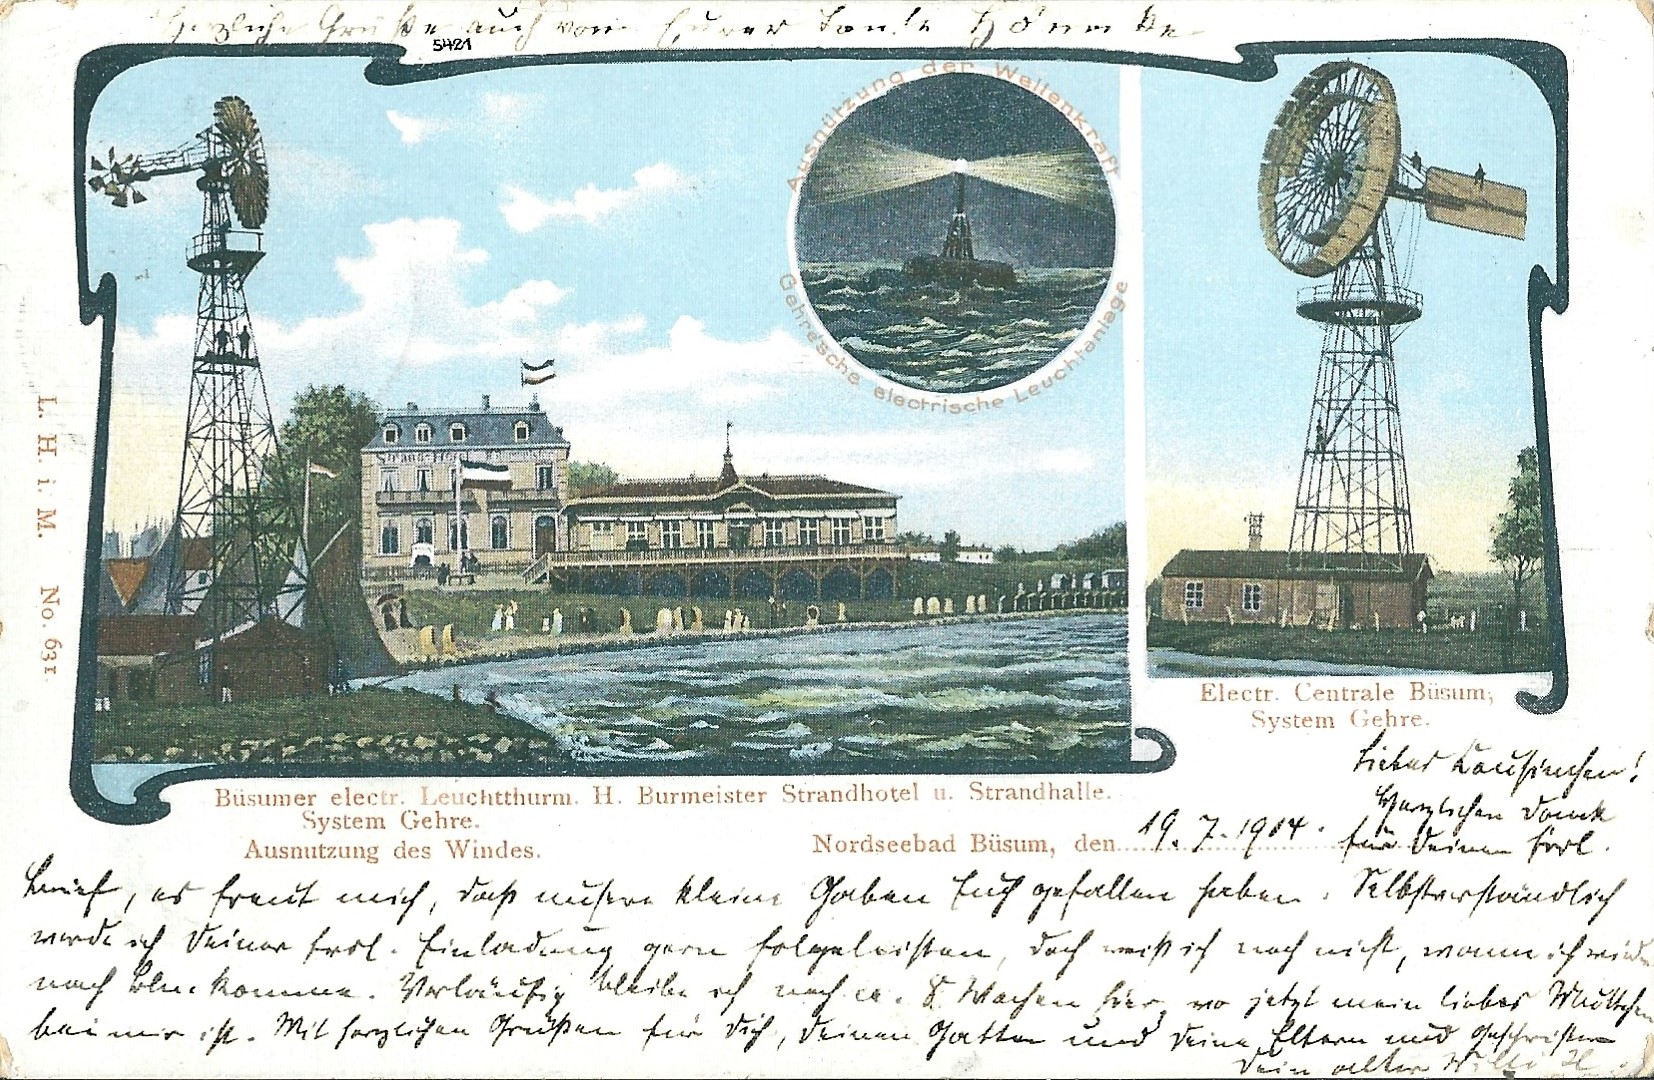 Herzliche Grüße auch von Eurer Tante
5421
Ausnützung der Wellenkraft
Gehre'sche electrische Leuchtanlage
Strand-Hotel
L. H. i. M. No. 631.
Electr. Centrale Büsum,
System Gehre.
Büsumer electr. Leuchtthurm. H. Burmeister Strandhotel u. Strandhalle.
System Gehre.
Ausnutzung des Windes.
Nordseebad Büsum, den 19. 7. 1904.
Liebes Cousinchen!
Herzlichen Dank
für Deinen frdl.
Brief, es freut mich, daß unsere kleine Gaben Euch gefallen haben. Selbstverständlich
werde ich Deiner frdl. Einladung gern folgeleisten, doch weiß ich noch nicht, wann ich wieder
nach komme. Vorläufig bleibe ich noch ca. 8 Wochen hier, wo jetzt mein liebes Muttchen
bei mir ist. Mit herzlichen Grüßen für Dich, Deinen Gatten und Deine Eltern und Geschwister
Dein alter Willi H.